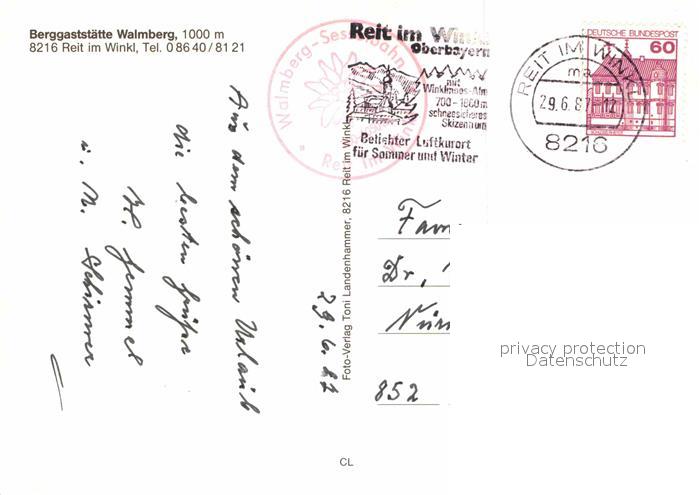 Berggaststätte Walmberg, 1000 m
8216 Reit im Winkl, Tel. 0 86 40 / 81 21
Aus dem schönen Urlaub
die besten Grüße
u. N.
29.6.87
Foto-Verlag Toni Landenhammer, 8216 Reit im Winkl
CL
Walmberg-Sesselbahn
Reit im Winkl
Reit im Wink
Oberbayern
mit
Winklmoos-Alm
700-1800m
schneesicheres
Skizentrum
Beliebter Luftkurort
für Sommer und Winter
REIT IM WINKL
ma
29.6.87-12
8216
DEUTSCHE BUNDESPOST
60
Fam
Dr,
Nür
852
privacy protection
Datenschutz